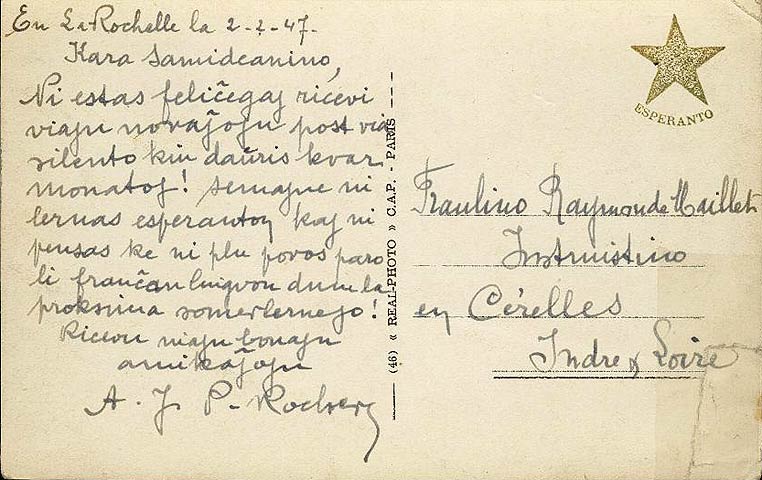 En La Rochelle la 2-2-47.
Kara samideanino,
Ni estas feliĉegaj ricevi
viajn novaĵojn post via
silento kiu daŭris kvar
monatoj! semajne ni
lernas esperanton kaj ni
pensas ke ni plu povos paro
li franĉan lingvon dum la
proksima somerlernejo!
Ricevu niajn bonajn
amikaĵojn
A. J. P-
ESPERANTO
(46) « REAL-PHOTO » C.A.P. - PARIS
Fraulino Raymonde Maillet
Instruistino
en Cérelles
Indre & Loire